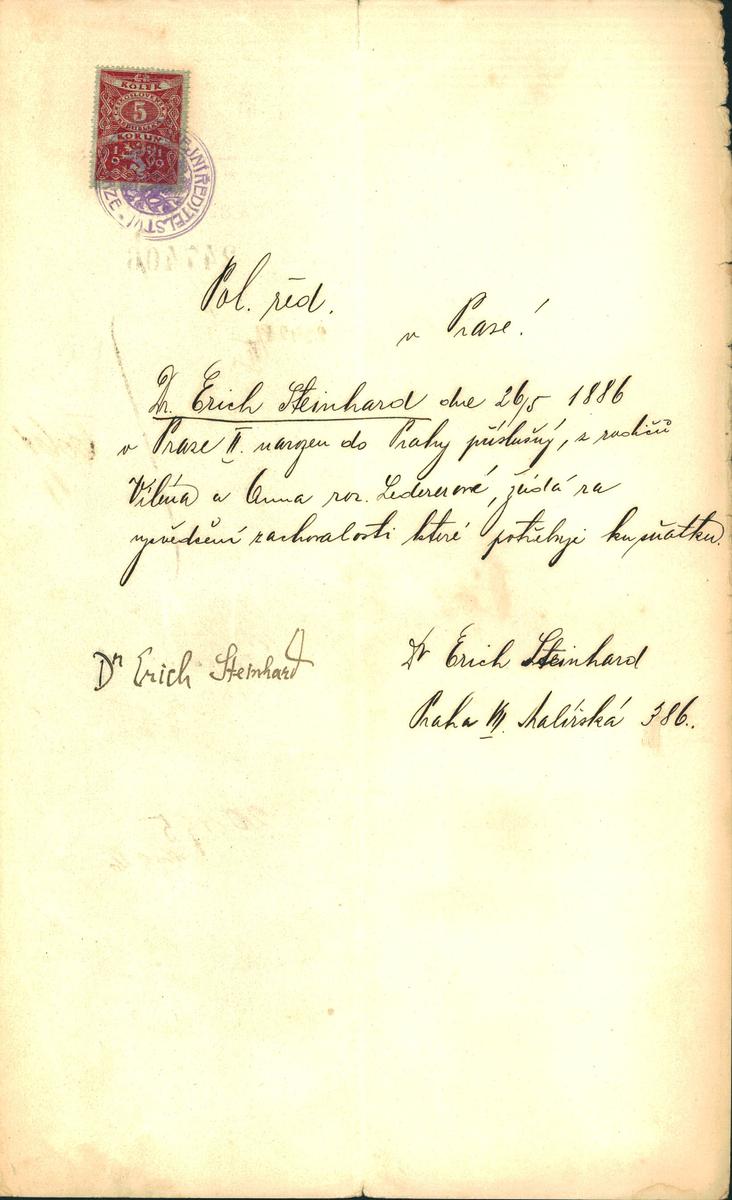 KOLEK
5
KORUN
1919
Pol. řed.
v Praze!
Dr. Erich Steinhard dne 26/5 1886
v Praze II. narozen do Prahy příslušný, z rodičů
Viléma a Anna roz. Ledererové, žádá za
vysvědčení zachovalosti které potřebuje ku sňatku.
Dr Erich Steinhard
Dr Erich Steinhard
Praha VII. Malířská 386.